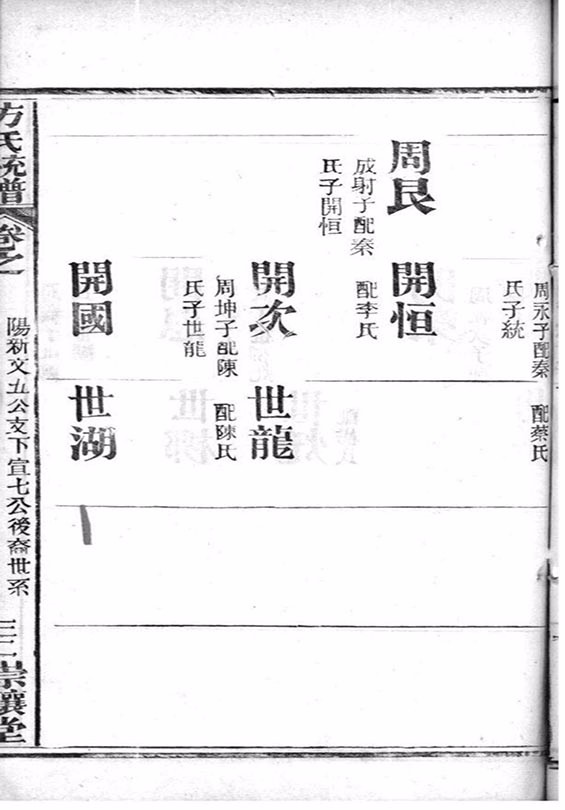 周永子配秦
氏子統
配蔡氏
周艮
成射子配秦
氏子開恒
開恒
配李氏
開次
周坤子配陳
氏子世龍
世龍
配陳氏
開國
世湖
方氏統譜
卷之
陽新文五公支下宣七公後裔世系
三二
崇讓堂